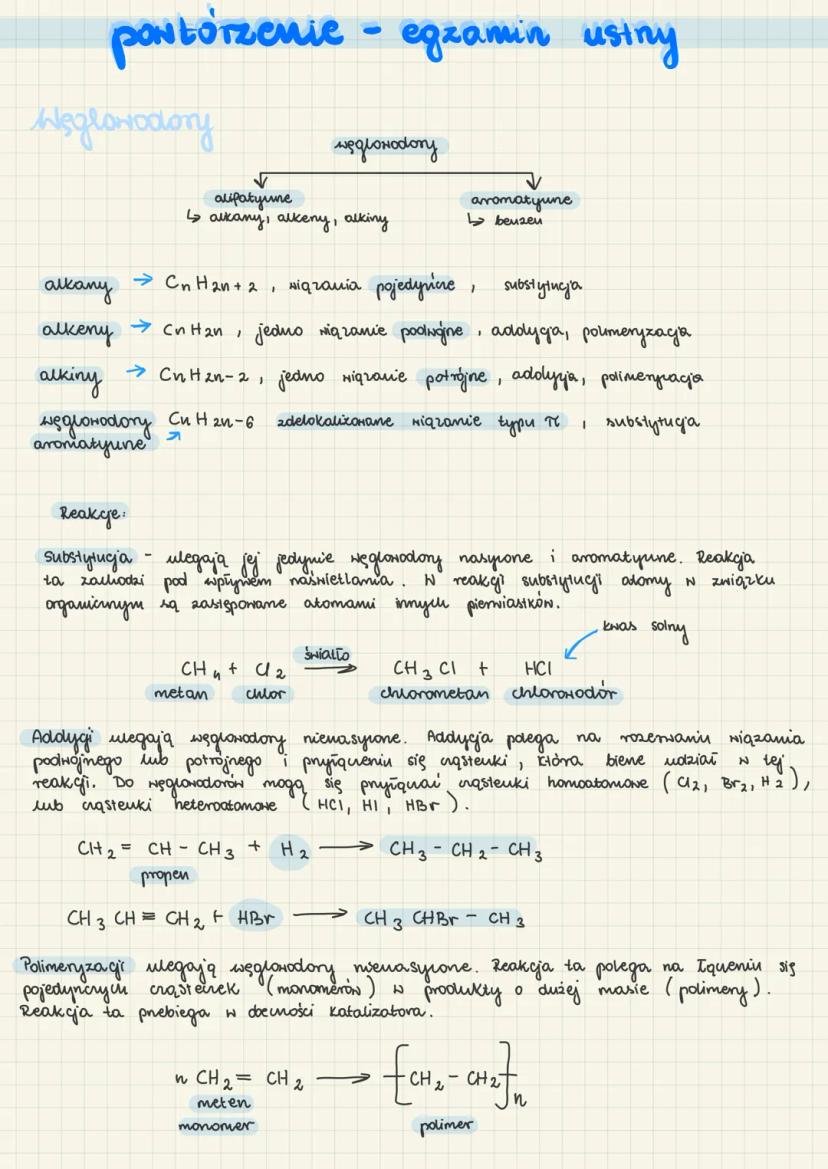 powtórzenie - egzamin ustny
Węglowodory
węglowodory
alifatyczne
aromatyczne
↳ alkany, alkeny, alkiny
↳ benzen
alkany → CnH2n+2 , wiązania pojedyncze , substytucja
alkeny → CnH2n , jedno wiązanie podwójne , addycja, polimeryzacja
alkiny → CnH2n-2 , jedno wiązanie potrójne , addycja, polimeryzacja
węglowodory CnH2n-6 zdelokalizowane wiązanie typu π , substytucja
aromatyczne
Reakcje:
Substytucja - ulegają jej jedynie węglowodory nasycone i aromatyczne. Reakcja
ta zachodzi pod wpływem naświetlania. W reakcji substytucji atomy w związku
organicznym są zastępowane atomami innych pierwiastków.
kwas solny
światło
CH4 + Cl2 → CH3Cl + HCl
metan chlor chlorometan chlorowodór
Addycji ulegają węglowodory nienasycone. Addycja polega na rozerwaniu wiązania
podwójnego lub potrójnego i przyłączeniu się cząsteczki, która bierze udział w tej
reakcji. Do węglowodorów mogą się przyłączać cząsteczki homoatomowe (Cl2, Br2, H2),
lub cząsteczki heteroatomowe (HCl, HI, HBr).
CH2 = CH - CH3 + H2 → CH3 - CH2 - CH3
propen
CH3 CH ≡ CH2 + HBr → CH3 CHBr - CH3
Polimeryzacji ulegają węglowodory nienasycone. Reakcja ta polega na łączeniu się
pojedynczych cząsteczek (monomerów) w produkty o dużej masie (polimery).
Reakcja ta przebiega w obecności katalizatora.
n CH2 = CH2 → [CH2 - CH2]n
meten
monomer polimer